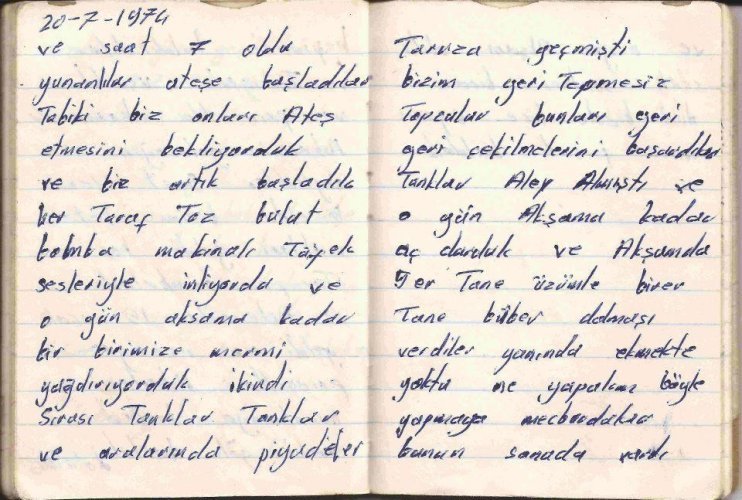 20-7-1974
ve saat 7 oldu
yunanlılar ateşe başladılar
Tabiki biz onları Ateş
etmesini bekliyorduk
ve biz artık başladık
her Taraf Toz bulut
bomba makinalı Tüfek
sesleriyle inliyordu ve
o gün akşama kadar
bir birimize mermi
yağdırıyorduk ikindi
Sırası Tanklar Tanklar
ve aralarında piyadeler
Taruza geçmişti
bizim geri Tepmesiz
Topcular bunları geri
geri çekilmelerini başardılar
Tanklar Alev Almıştı ve
o gün Akşama kadar
aç durduk ve Akşamda
5er Tane üzümle birer
Tane biber dolması
verdiler yanında ekmekte
yoktu ne yapalım böyle
yapmaya mecburdular
bunun sonuda vardı